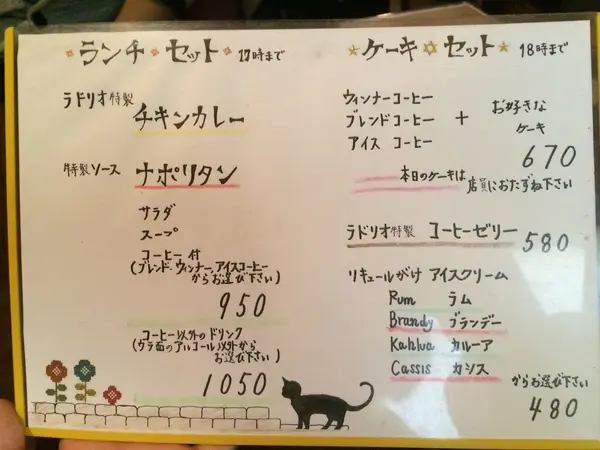 ランチ・セット 17時まで
ラドリオ特製
チキンカレー
特製ソース ナポリタン
サラダ
スープ
コーヒー 付
(ブレンド・ウィンナー、アイスコーヒー
からお選び下さい)
950
コーヒー以外のドリンク
(ウラ面のアルコール以外から
お選び下さい)
1050
ケーキ☆セット 18時まで
ウィンナーコーヒー
ブレンドコーヒー
アイス コーヒー
+
お好きな
ケーキ
670
本日のケーキは
店員におたずね下さい
ラドリオ特製 コーヒーゼリー 580
リキュールがけ アイスクリーム
Rum ラム
Brandy ブランデー
Kahlua カルーア
Cassis カシス
からお選び下さい
480